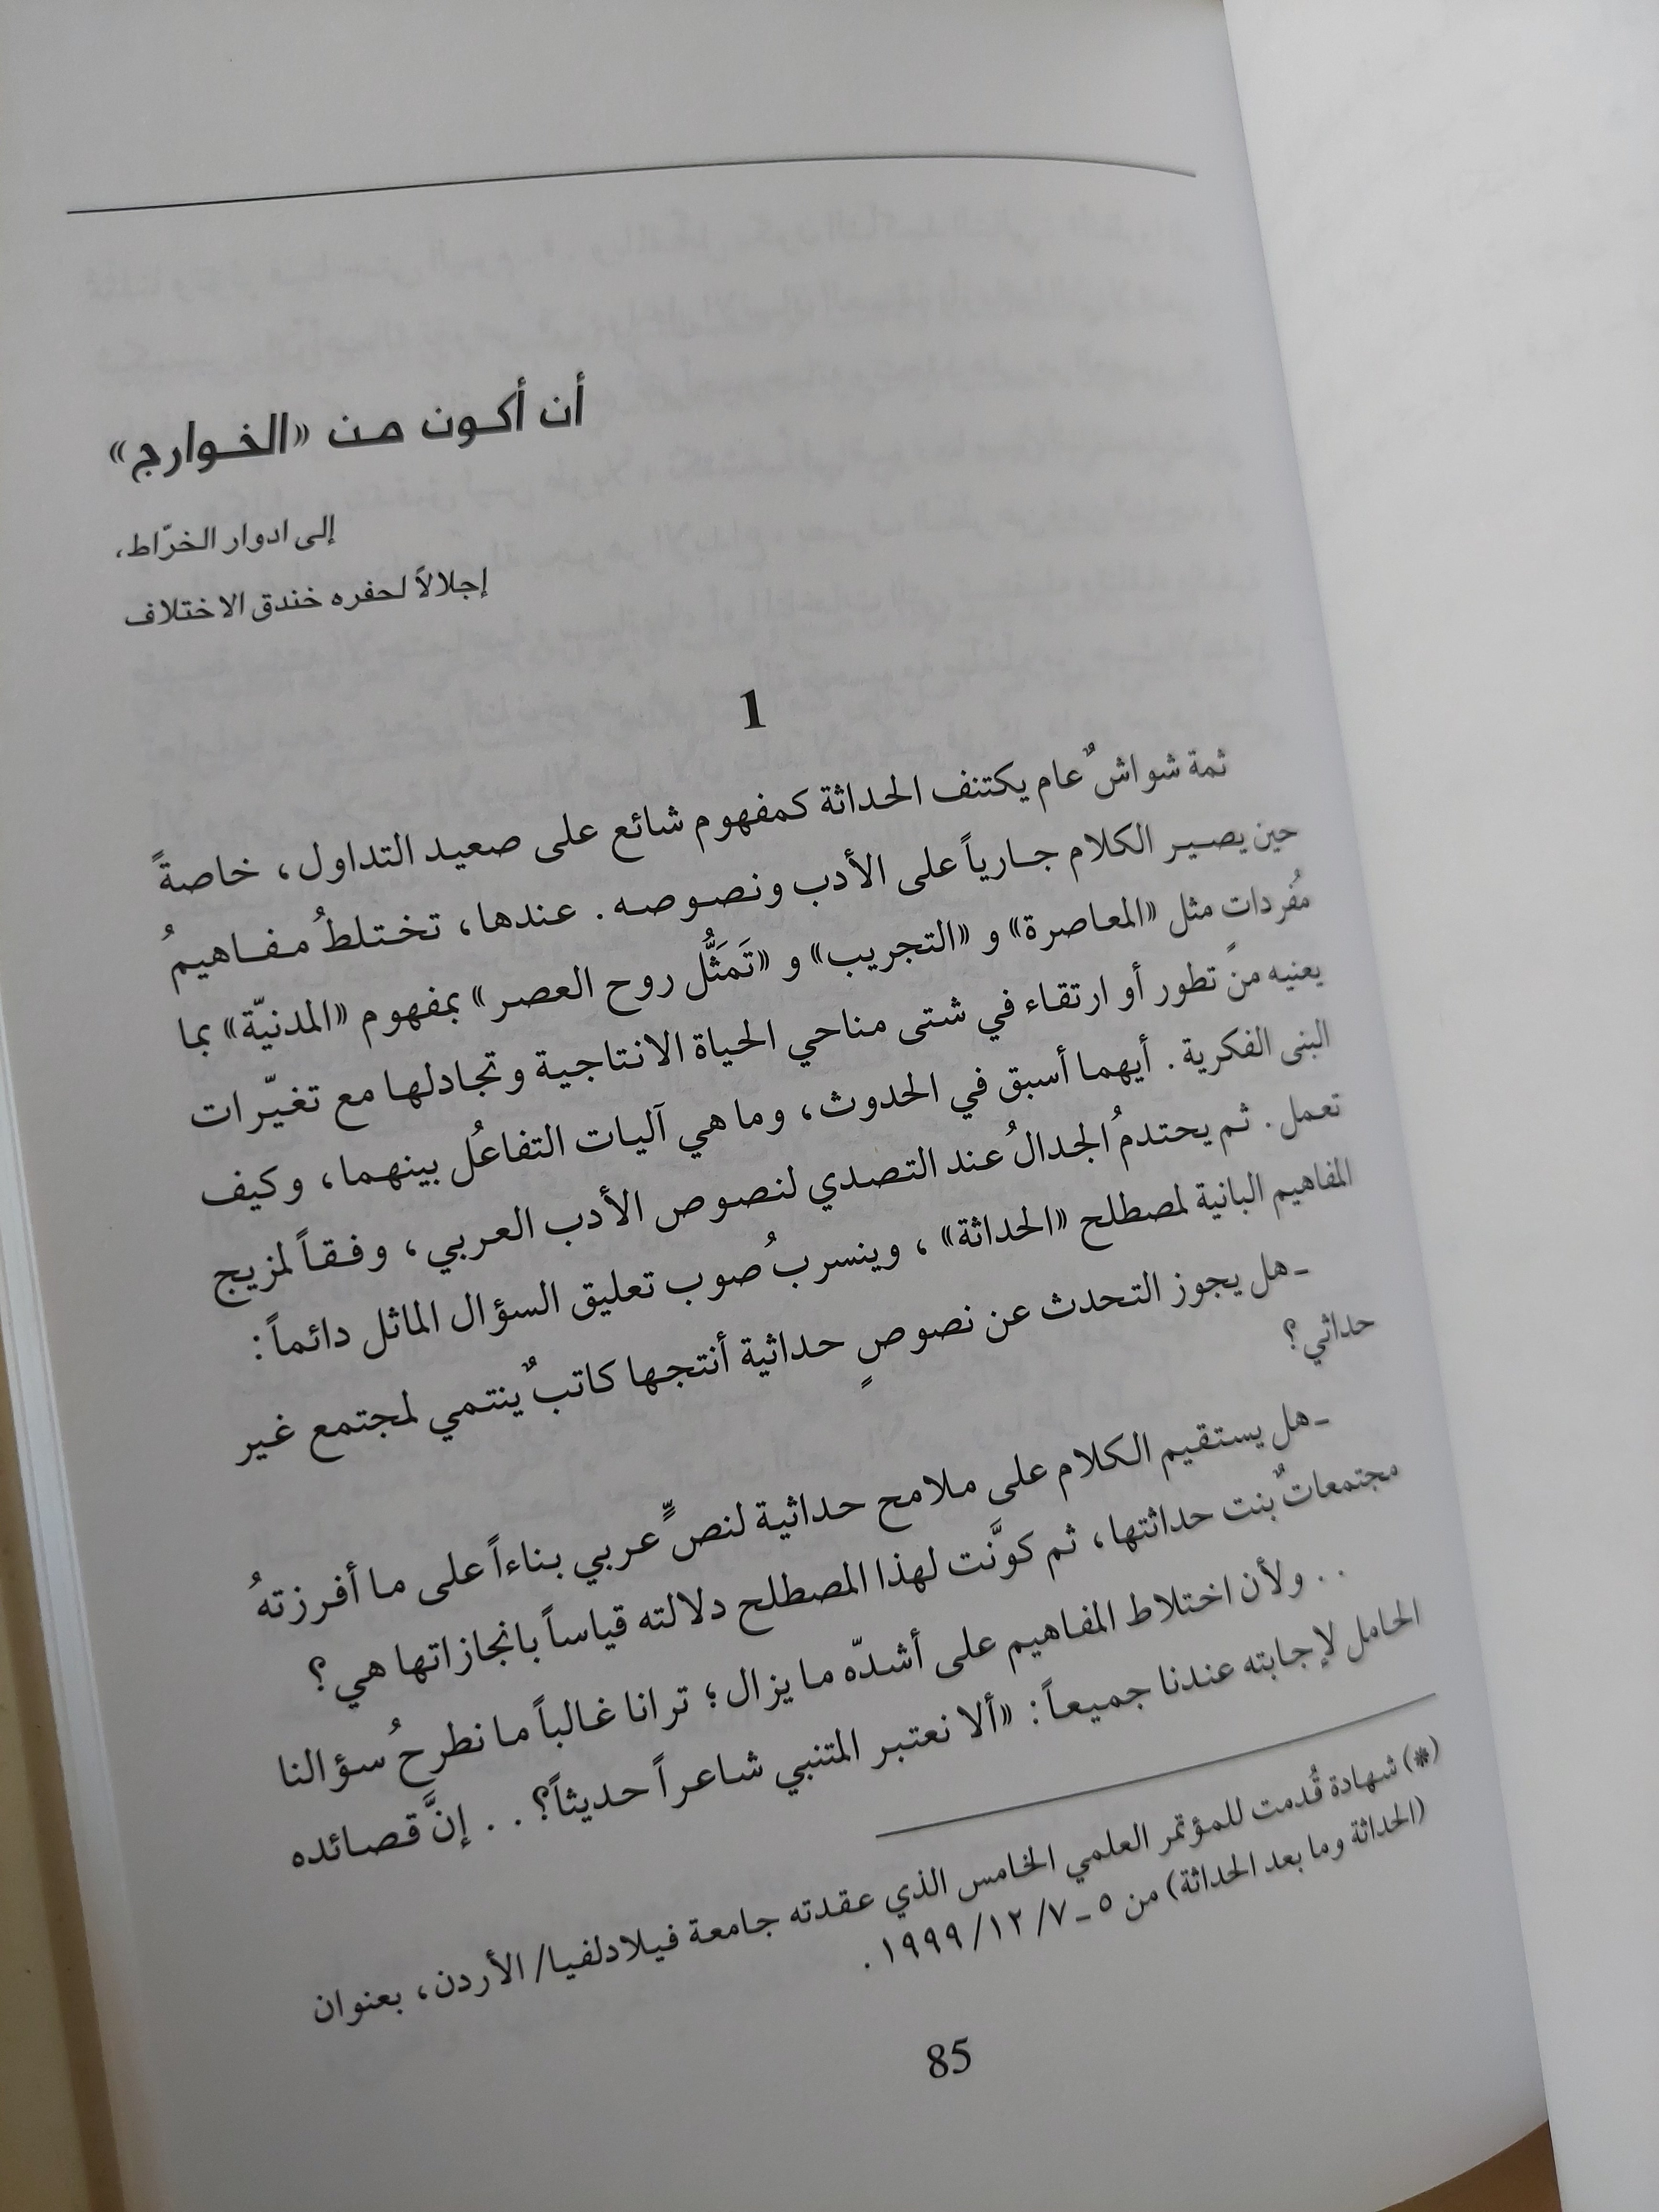 أن أكون من «الخوارج»
إلى ادوار الخرّاط،
إجلالاً لحفره خندق الاختلاف
1
ثمة شواشٌ عام يكتنف الحداثة كمفهوم شائع على صعيد التداول، خاصةً
حين يصير الكلام جارياً على الأدب ونصوصه. عندها، تختلطُ مفاهيمُ
مُفرداتٍ مثل «المعاصرة» و «التجريب» و «تَمَثُّل روح العصر» بمفهوم «المدنيّة» بما
يعنيه من تطور أو ارتقاء في شتى مناحي الحياة الانتاجية وتجادلها مع تغيّرات
البنى الفكرية. أيهما أسبق في الحدوث، وما هي آليات التفاعُل بينهما، وكيف
تعمل. ثم يحتدمُ الجدالُ عند التصدي لنصوص الأدب العربي، وفقاً لمزيج
المفاهيم البانية لمصطلح «الحداثة»، وينسربُ صوب تعليق السؤال الماثل دائماً:
ـ هل يجوز التحدث عن نصوصٍ حداثية أنتجها كاتبٌ ينتمي لمجتمع غير
حداثي؟
ـ هل يستقيم الكلام على ملامح حداثية لنصٍّ عربي بناءاً على ما أفرزتهُ
مجتمعاتٌ بنت حداثتها، ثم كوَّنت لهذا المصطلح دلالته قياساً بانجازاتها هي؟
.. ولأن اختلاط المفاهيم على أشدّه ما يزال؛ ترانا غالباً ما نطرحُ سؤالنا
الحامل لإجابته عندنا جميعاً: «ألا نعتبر المتنبي شاعراً حديثاً؟.. إنَّ قصائده
(*) شهادة قُدمت للمؤتمر العلمي الخامس الذي عقدته جامعة فيلادلفيا/ الأردن، بعنوان
(الحداثة وما بعد الحداثة) من ٥ ـ ٧/ ١٢/ ١٩٩٩.
85